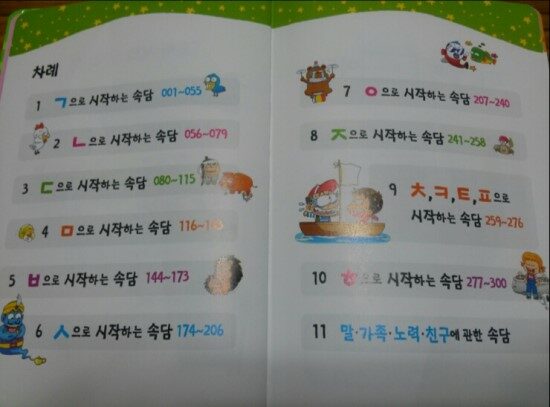 차례
1 ㄱ으로 시작하는 속담 001~055
2 ㄴ으로 시작하는 속담 056~079
3 ㄷ으로 시작하는 속담 080~115
4 ㅁ으로 시작하는 속담
5 ㅂ으로 시작하는 속담 144~173
6 ㅅ으로 시작하는 속담 174~206
7 ㅇ으로 시작하는 속담 207~240
8 ㅈ으로 시작하는 속담 241~258
9 ㅊ,ㅋ,ㅌ,ㅍ으로
시작하는 속담 259~276
10 ㅎ으로 시작하는 속담 277~300
11 말·가족·노력·친구에 관한 속담